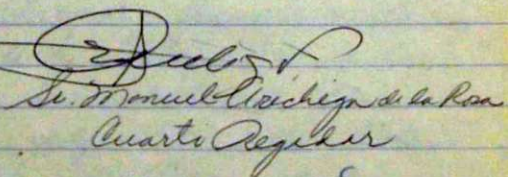 Sr. Manuel Arichiga de la Rosa
Cuarto Regidor